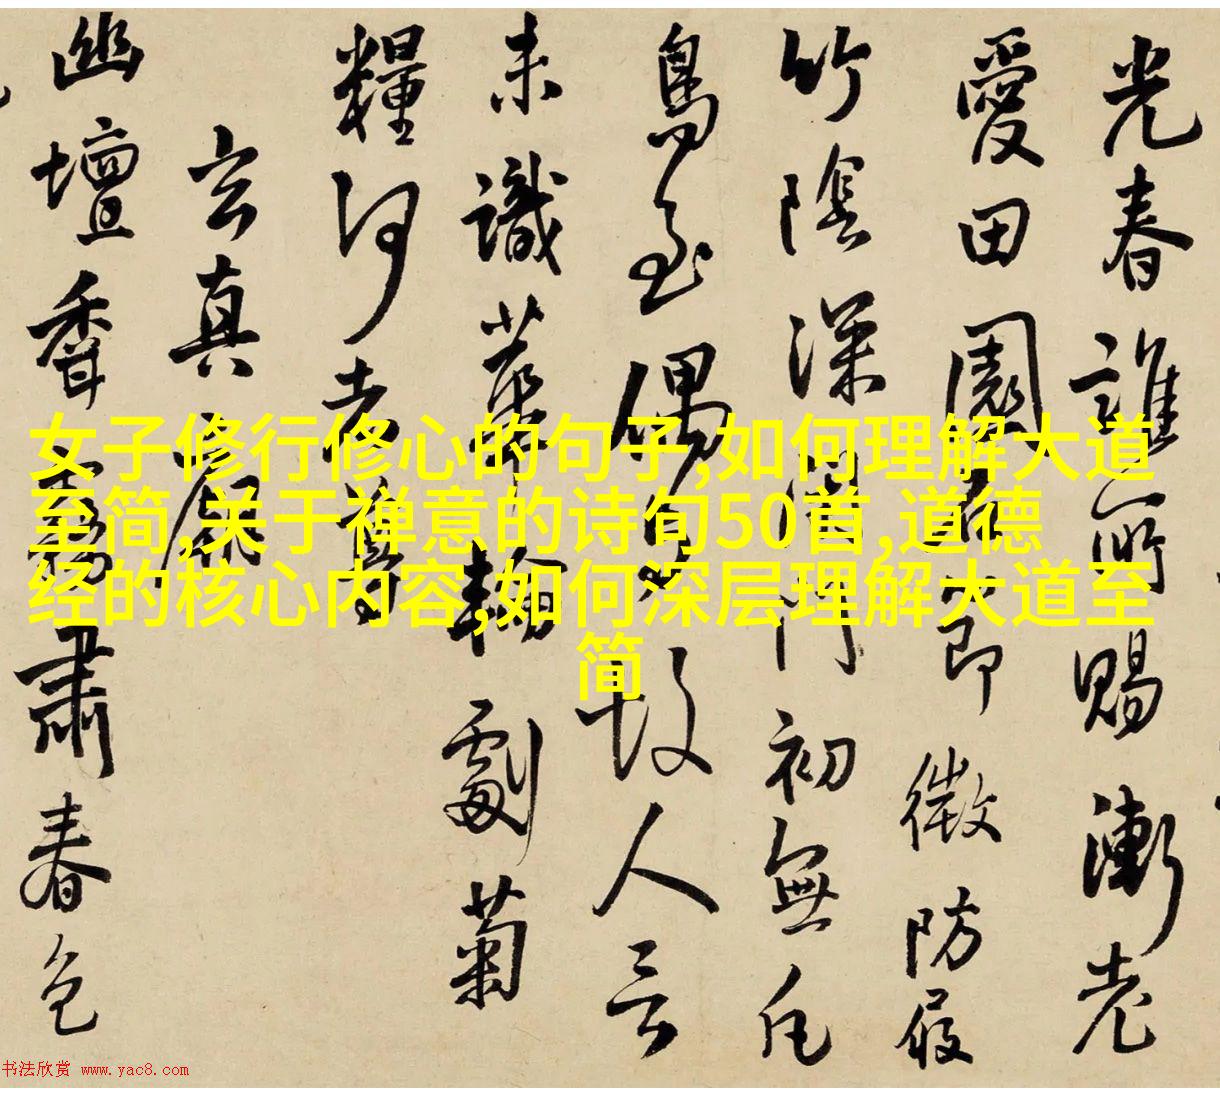 光春誰所賜漸老
愛田園即微防屐
竹陰深閉門初無凡
鳥至偶見故人言
未識輪劇菊
糧何
玄真
幽壇香靄肅春色
女子修行修心的句子,如何理解大道
至简,关于禅意的诗句50首,道德
经的核心内容,如何深层理解大道至
简
书法欣赏 www.yac8.com